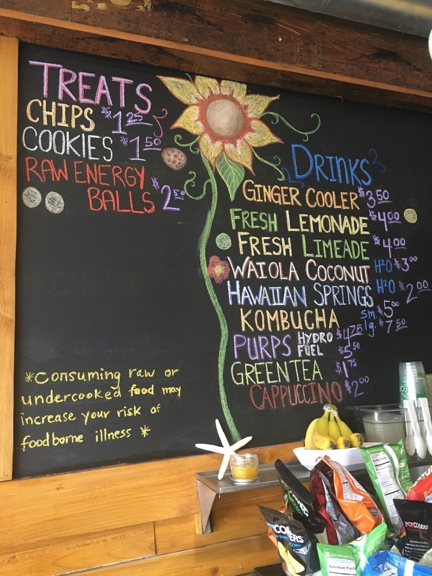 TREATS
CHIPS $1.25
COOKIES $1.50
RAW ENERGY
BALLS $2.50
*Consuming raw or
undercooked food may
increase your risk of
foodborne illness *
DRINKS
GINGER COOLER $3.50
FRESH LEMONADE $4.00
FRESH LIMEADE $4.00
WAIOLA COCONUT H2O $3.00
HAWAIIAN SPRINGS H2O $2.00
KOMBUCHA sm. $5.00
lg. $7.50
PURPS HYDRO $4.25
FUEL $5.50
GREEN TEA $1.75
CAPPUCCINO $2.00
POPCORNERS